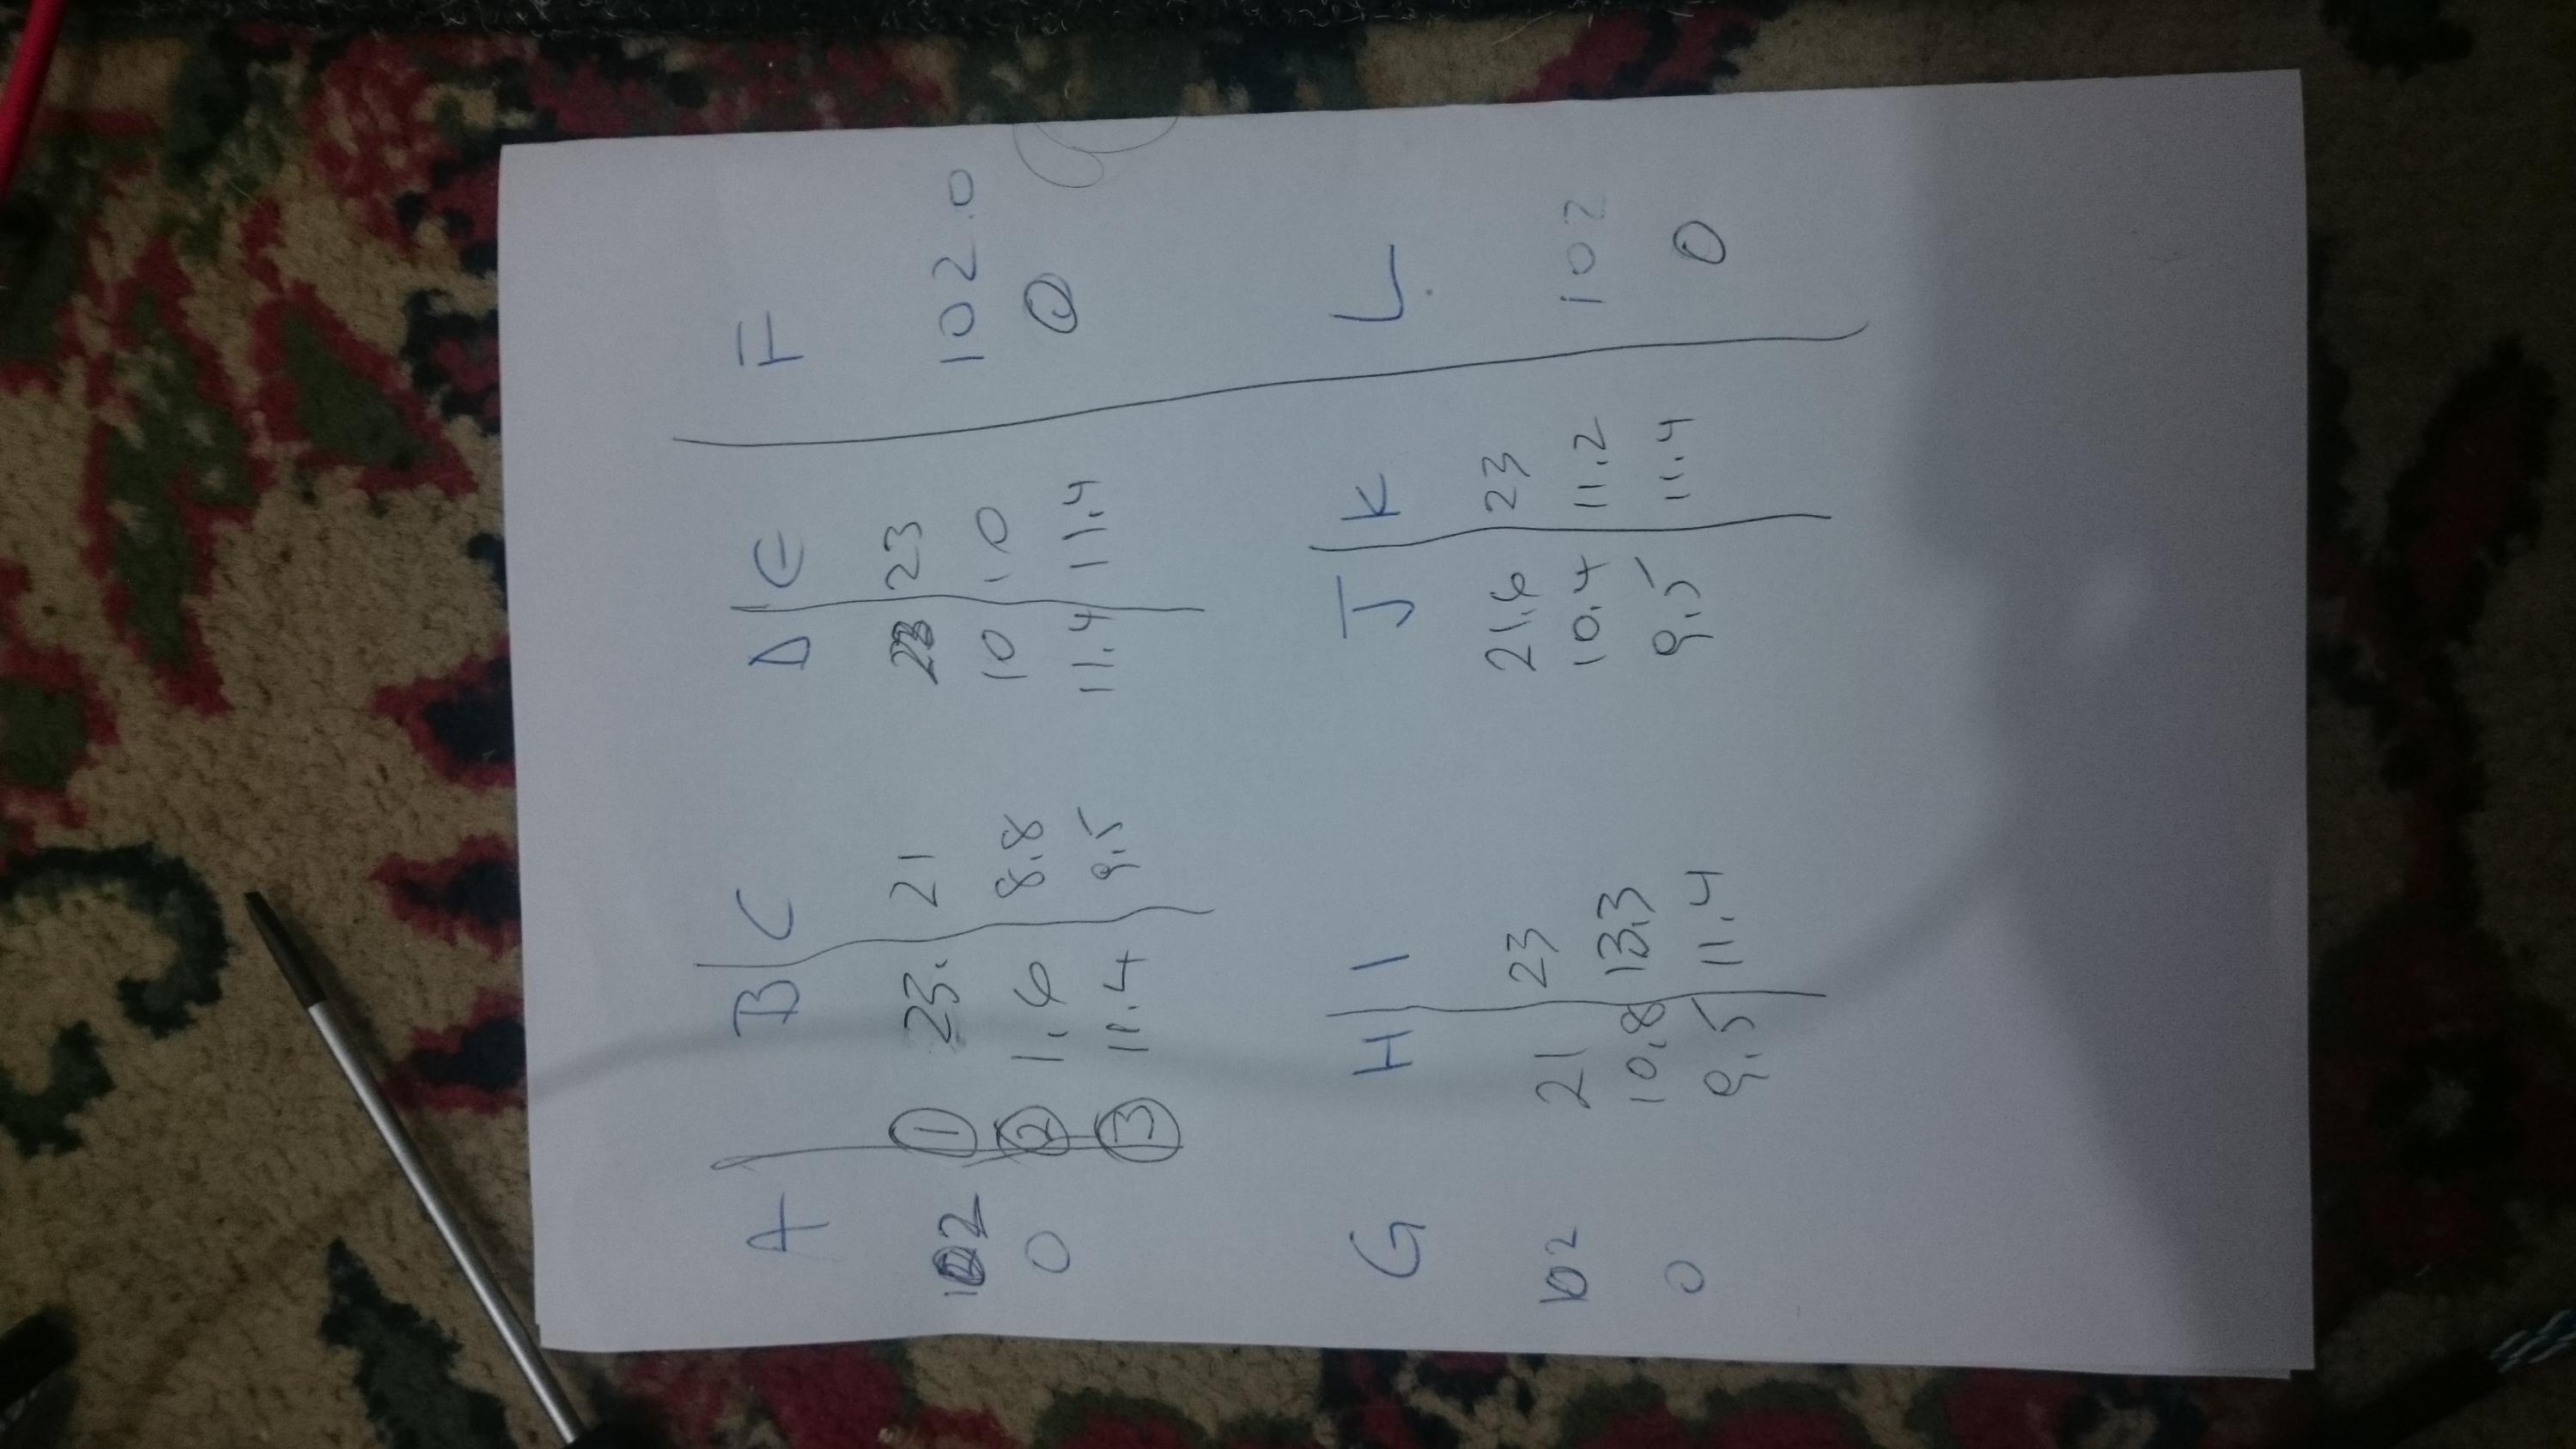 A B C D E F
102 ① 23. 21 23 23 102.0
0 ② 1.6 8.8 10 10 0
③ 11.4 9.5 11.4 11.4
G H I J K L
102 21 23 21.6 23 102
0 10.8 13.3 10.4 11.2 0
9.5 11.4 9.5 11.4